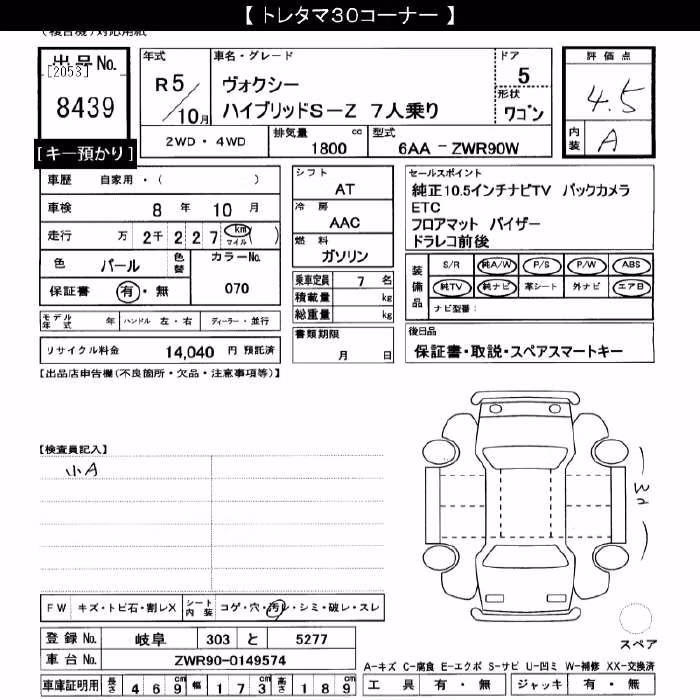 【 トレタマ30コーナー 】
(複合機)対応用紙
出品No.
[2053]
8439
[キー預かり]
年式
R5/10月
車名・グレード
ヴォクシー
ハイブリッドS-Z 7人乗り
ドア
5
形状
ワゴン
2WD・4WD
排気量 cc
1800
型式
6AA-ZWR90W
評価点
4.5
内装
A
車歴 自家用・( )
車検 8年 10月
走行 万 2千 2 2 7 km マイル ( )
色 パール 色替 カラーNo.
保証書 有・無 070
モデル年式 年 ハンドル 左・右 ディーラー・並行
リサイクル料金 14,040 円 預託済
シフト
AT
冷房
AAC
燃料
ガソリン
乗車定員 7 名
積載量 kg
総重量 kg
書類期限
月 日
セールスポイント
純正10.5インチナビTV バックカメラ
ETC
フロアマット バイザー
ドラレコ前後
装備品
S/R 純A/W P/S P/W ABS
純TV 純ナビ 革シート 外ナビ エアB
ナビ型番:
後日品
保証書・取説・スペアスマートキー
【出品店申告欄(不良箇所・欠品・注意事項等)】
【検査員記入】
小A
FW キズ・トビ石・割レX シート内装 コゲ・穴・汚レ・シミ・破レ・スレ
登録No. 岐阜 303 と 5277
車台No. ZWR90-0149574
車庫証明用 長さ 469cm 幅 173cm 高さ 189cm
スペア
A-キズ C-腐食 E-エクボ S-サビ U-凹ミ W-補修 XX-交換済
工具 有・無 ジャッキ 有・無